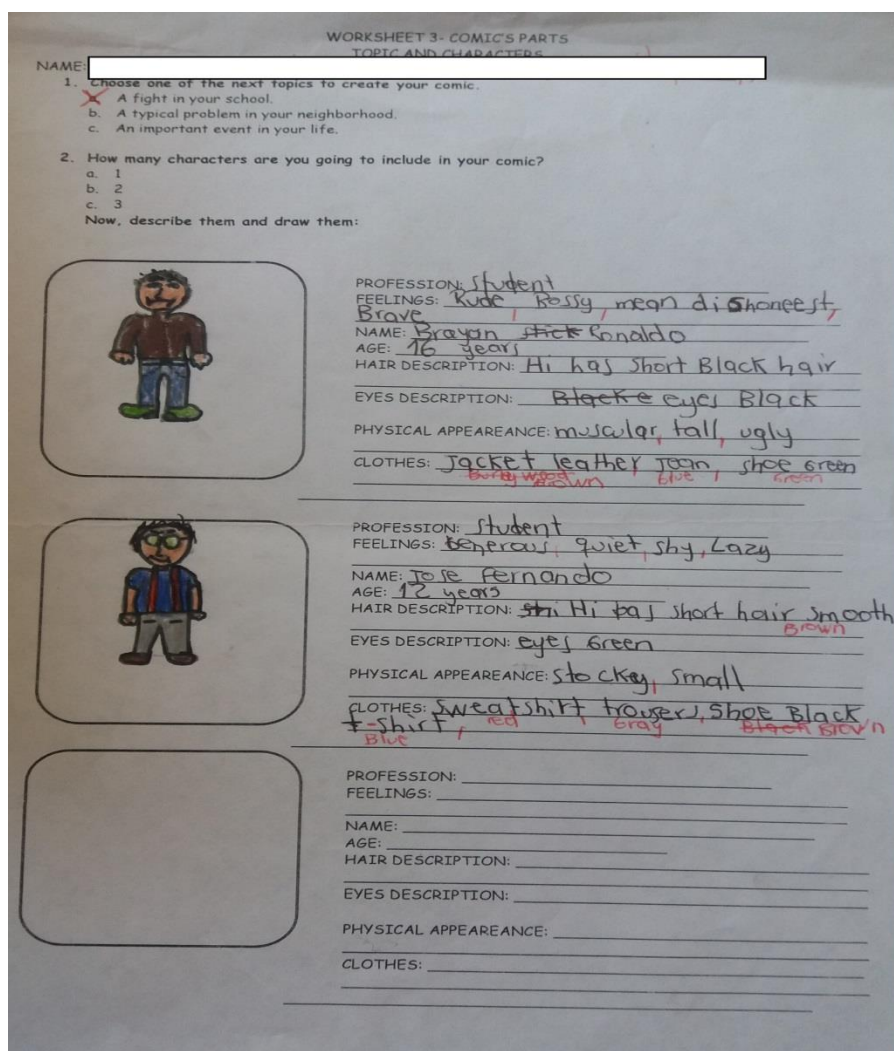 WORKSHEET 3- COMIC'S PARTS
TOPIC AND CHARACTERS
NAME:
1. Choose one of the next topics to create your comic.
a. A fight in your school.
b. A typical problem in your neighborhood.
c. An important event in your life.
2. How many characters are you going to include in your comic?
a. 1
b. 2
c. 3
Now, describe them and draw them:
PROFESSION: Student
FEELINGS: Rude, Bossy, mean dishoneest,
Brave
NAME: Brayan stick Ronaldo
AGE: 16 years
HAIR DESCRIPTION: Hi has short Black hair
EYES DESCRIPTION: Blacke eyes Black
PHYSICAL APPEAREANCE: muscular, tall, ugly
CLOTHES: Jacket leather, Jean, shoe Green
Brown Blue Green
PROFESSION: Student
FEELINGS: Generous, quiet, shy, Lazy
NAME: Jose Fernando
AGE: 12 years
HAIR DESCRIPTION: Hi has short hair smooth
Brown
EYES DESCRIPTION: eyes Green
PHYSICAL APPEAREANCE: stockey, small
CLOTHES: Sweatshirt, trousers, Shoe Black
red Gray Black Brown
t-shirt,
Blue
PROFESSION:
FEELINGS:
NAME:
AGE:
HAIR DESCRIPTION:
EYES DESCRIPTION:
PHYSICAL APPEAREANCE:
CLOTHES: